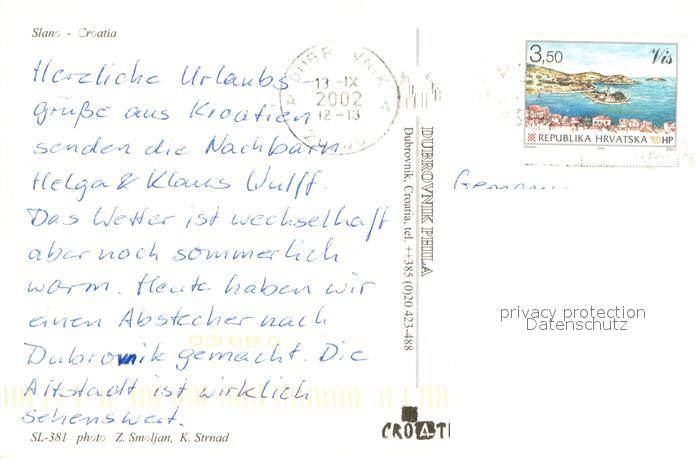 Slano - Croatia
Herzliche Urlaubs
grüße aus Kroatien
senden die Nachbarn
Helga & Klaus Wulff.
Das Wetter ist wechselhaft
aber noch sommerlich
warm. Heute haben wir
einen Abstecher nach
Dubrovnik gemacht. Die
Altstadt ist wirklich
sehenswert.
SL-381 photo Z. Smoljan, K. Strnad
DUBROVNIK
13 -IX
2002
12-13
A A
03050
DUBROVNIK PHILA
Dubrovnik, Croatia, tel. ++385 (0)20 423-488
CROAT
3,50 Vis
REPUBLIKA HRVATSKA HP
privacy protection
Datenschutz